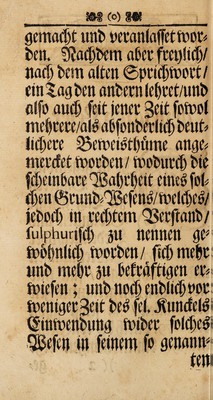 (o)
gemacht und veranlasset wor-
den. Nachdem aber freylich/
nach dem alten Sprichwort/
ein Tag den andern lehret/und
also auch seit jener Zeit sowol
mehrere/als absonderlich deut-
lichere Beweisthüme ange-
mercket worden/ wodurch die
scheinbare Wahrheit eines sol-
chen Grund-Wesens/welches/
jedoch in rechtem Verstand/
sulphurisch zu nennen ge-
wöhnlich worden/ sich mehr
und mehr zu bekräftigen er-
wiesen; und noch endlich vor
weniger Zeit des sel. Kunckels
Einwendung wider solches
Wesen in seinem so genann-
ten